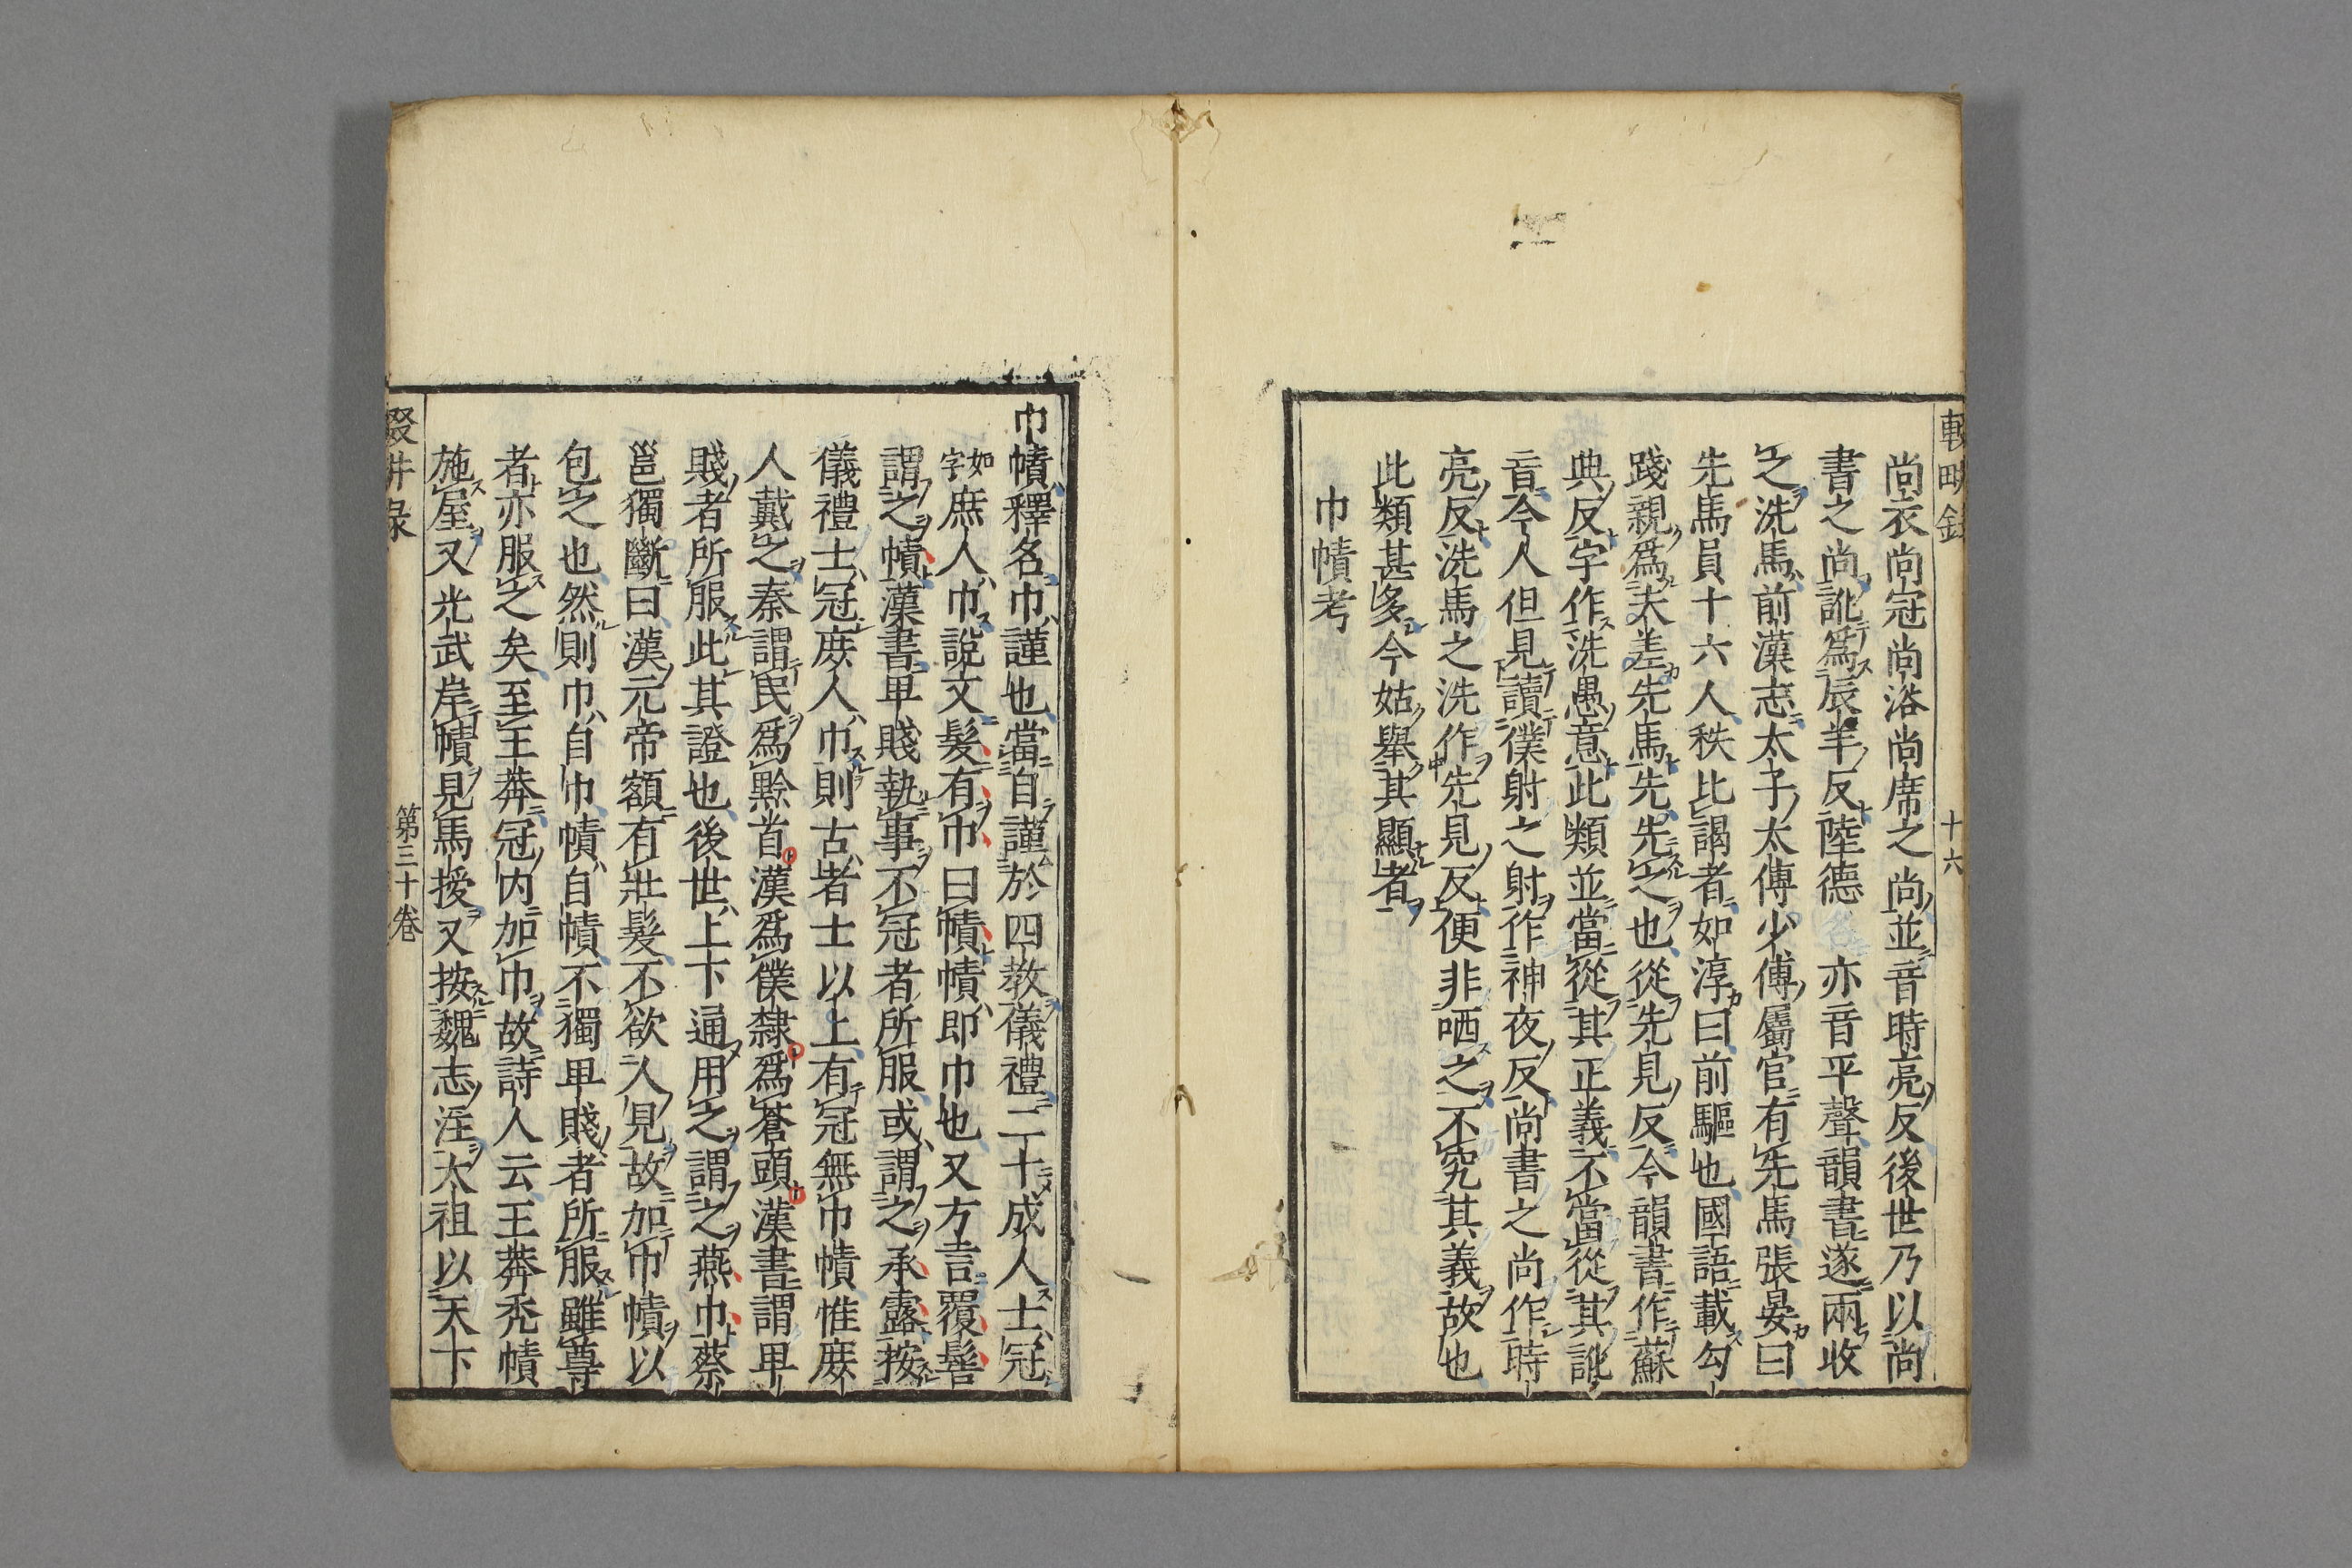 輟畊錄
十六
尚衣尚冠尚浴尚席之尚並音時亮反後世乃以尚
書之尚訛爲辰羊反陸德亦音平聲韻書遂兩收
之洗馬前漢志太子太傅少傅屬官有先馬張晏曰
先馬員十六人秩比謁者如淳曰前驅也國語載勾
踐親爲夫差先馬先先之也從先見反今韻書作蘇
典反字作洗愚意此類並當從其正義不當從其訛
音今人但見讀僕射之射作神夜反尚書之尚作時
亮反洗馬之洗作先見反便非哂之不究其義故也
此類甚多今姑舉其顯者
巾幘考
巾幘釋名巾謹也當自謹於四教儀禮二十成人士冠
如字庶人巾說文髮有巾曰幘幘即巾也又方言覆髻
謂之幘漢書卑賤執事不冠者所服或謂之承露按
儀禮士冠庶人巾則古者士以上有冠無巾幘惟庶
人戴之秦謂民爲黔首漢爲僕隸爲蒼頭漢書謂卑
賤者所服此其證也後世上下通用之謂之燕巾蔡
邕獨斷曰漢元帝額有壯髮不欲人見故加巾幘以
包之也然則巾自巾幘自幘不獨卑賤者所服雖尊
者亦服之矣至王莽冠內加巾故詩人云王莽禿幘
施屋又光武岸幘見馬援又按魏志注太祖以天下
輟畊錄
第三十卷